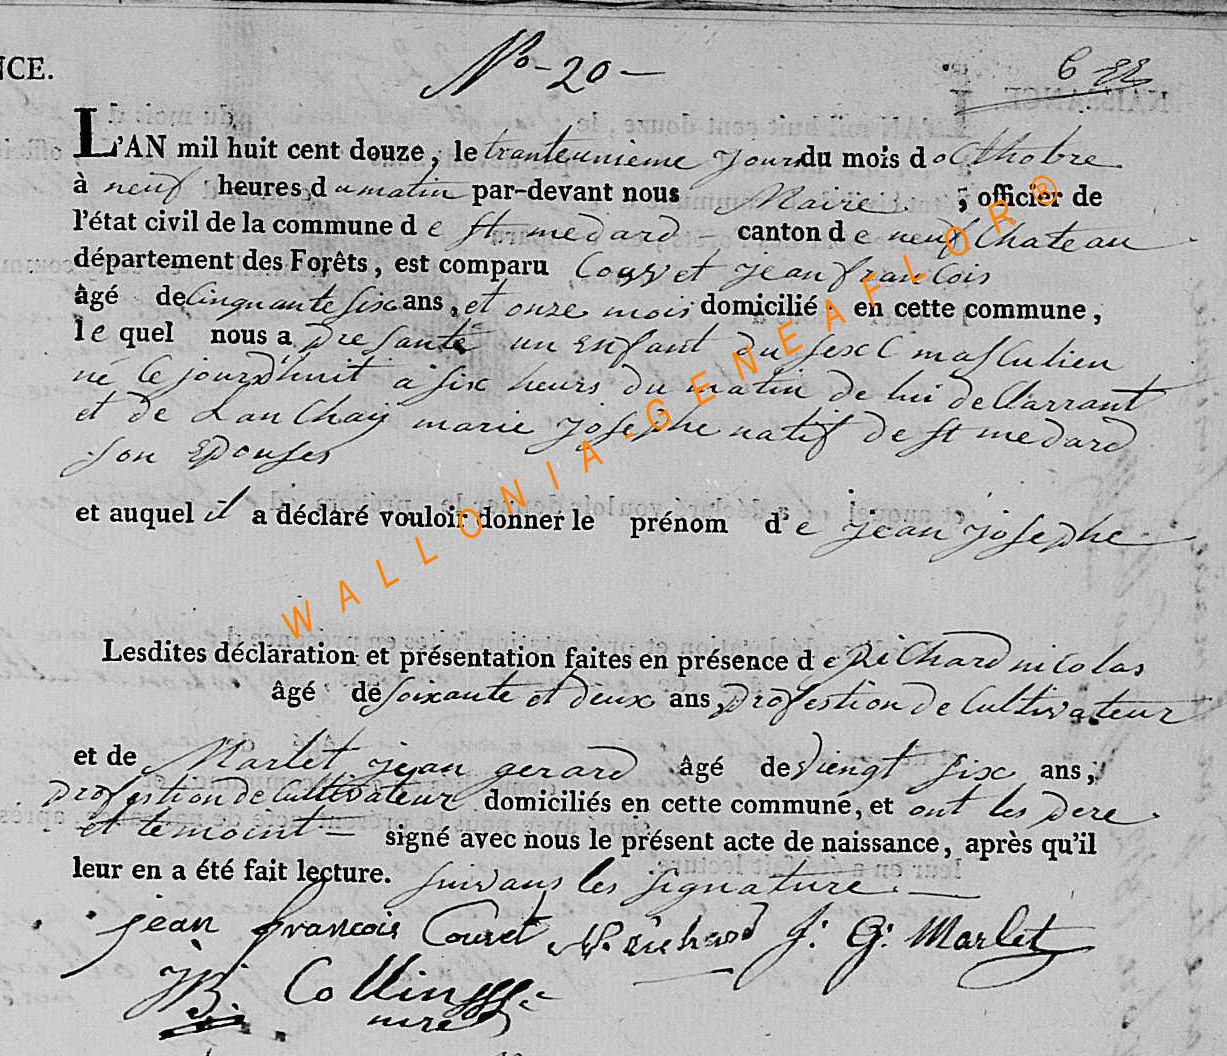 NCE.
No - 20 -
6
L'AN mil huit cent douze, le tranteunieme jour du mois d octhobre
à neuf heures du matin par-devant nous Maire ; officier de
l'état civil de la commune d e st medard - canton d e neufchateau
département des Forêts, est comparu jean francois
âgé de cinquante six ans, et onze mois domicilié en cette commune,
le quel nous a presanté un enfant du sexe masculien
né ce jourd'huit a six heurs du matin de lui declarrant
et de Lanchay marie josephe natif de st medard
son epouses
et auquel il a déclaré vouloir donner le prénom d'e jean josephe
Lesdites déclaration et présentation faites en présence d e Richard nicolas
âgé de soixante et deux ans, profestion de cultivateur
et de Marlet jean gerard âgé de viengt six ans,
profestion de cultivateur domiciliés en cette commune, et ont les pere
et temoint - signé avec nous le présent acte de naissance, après qu'il
leur en a été fait lecture. suivans les signature. -
jean francois Couvet N. richard J. G. Marlet
JB. Collin
mire
WALLONIA-GENEAFLOR®